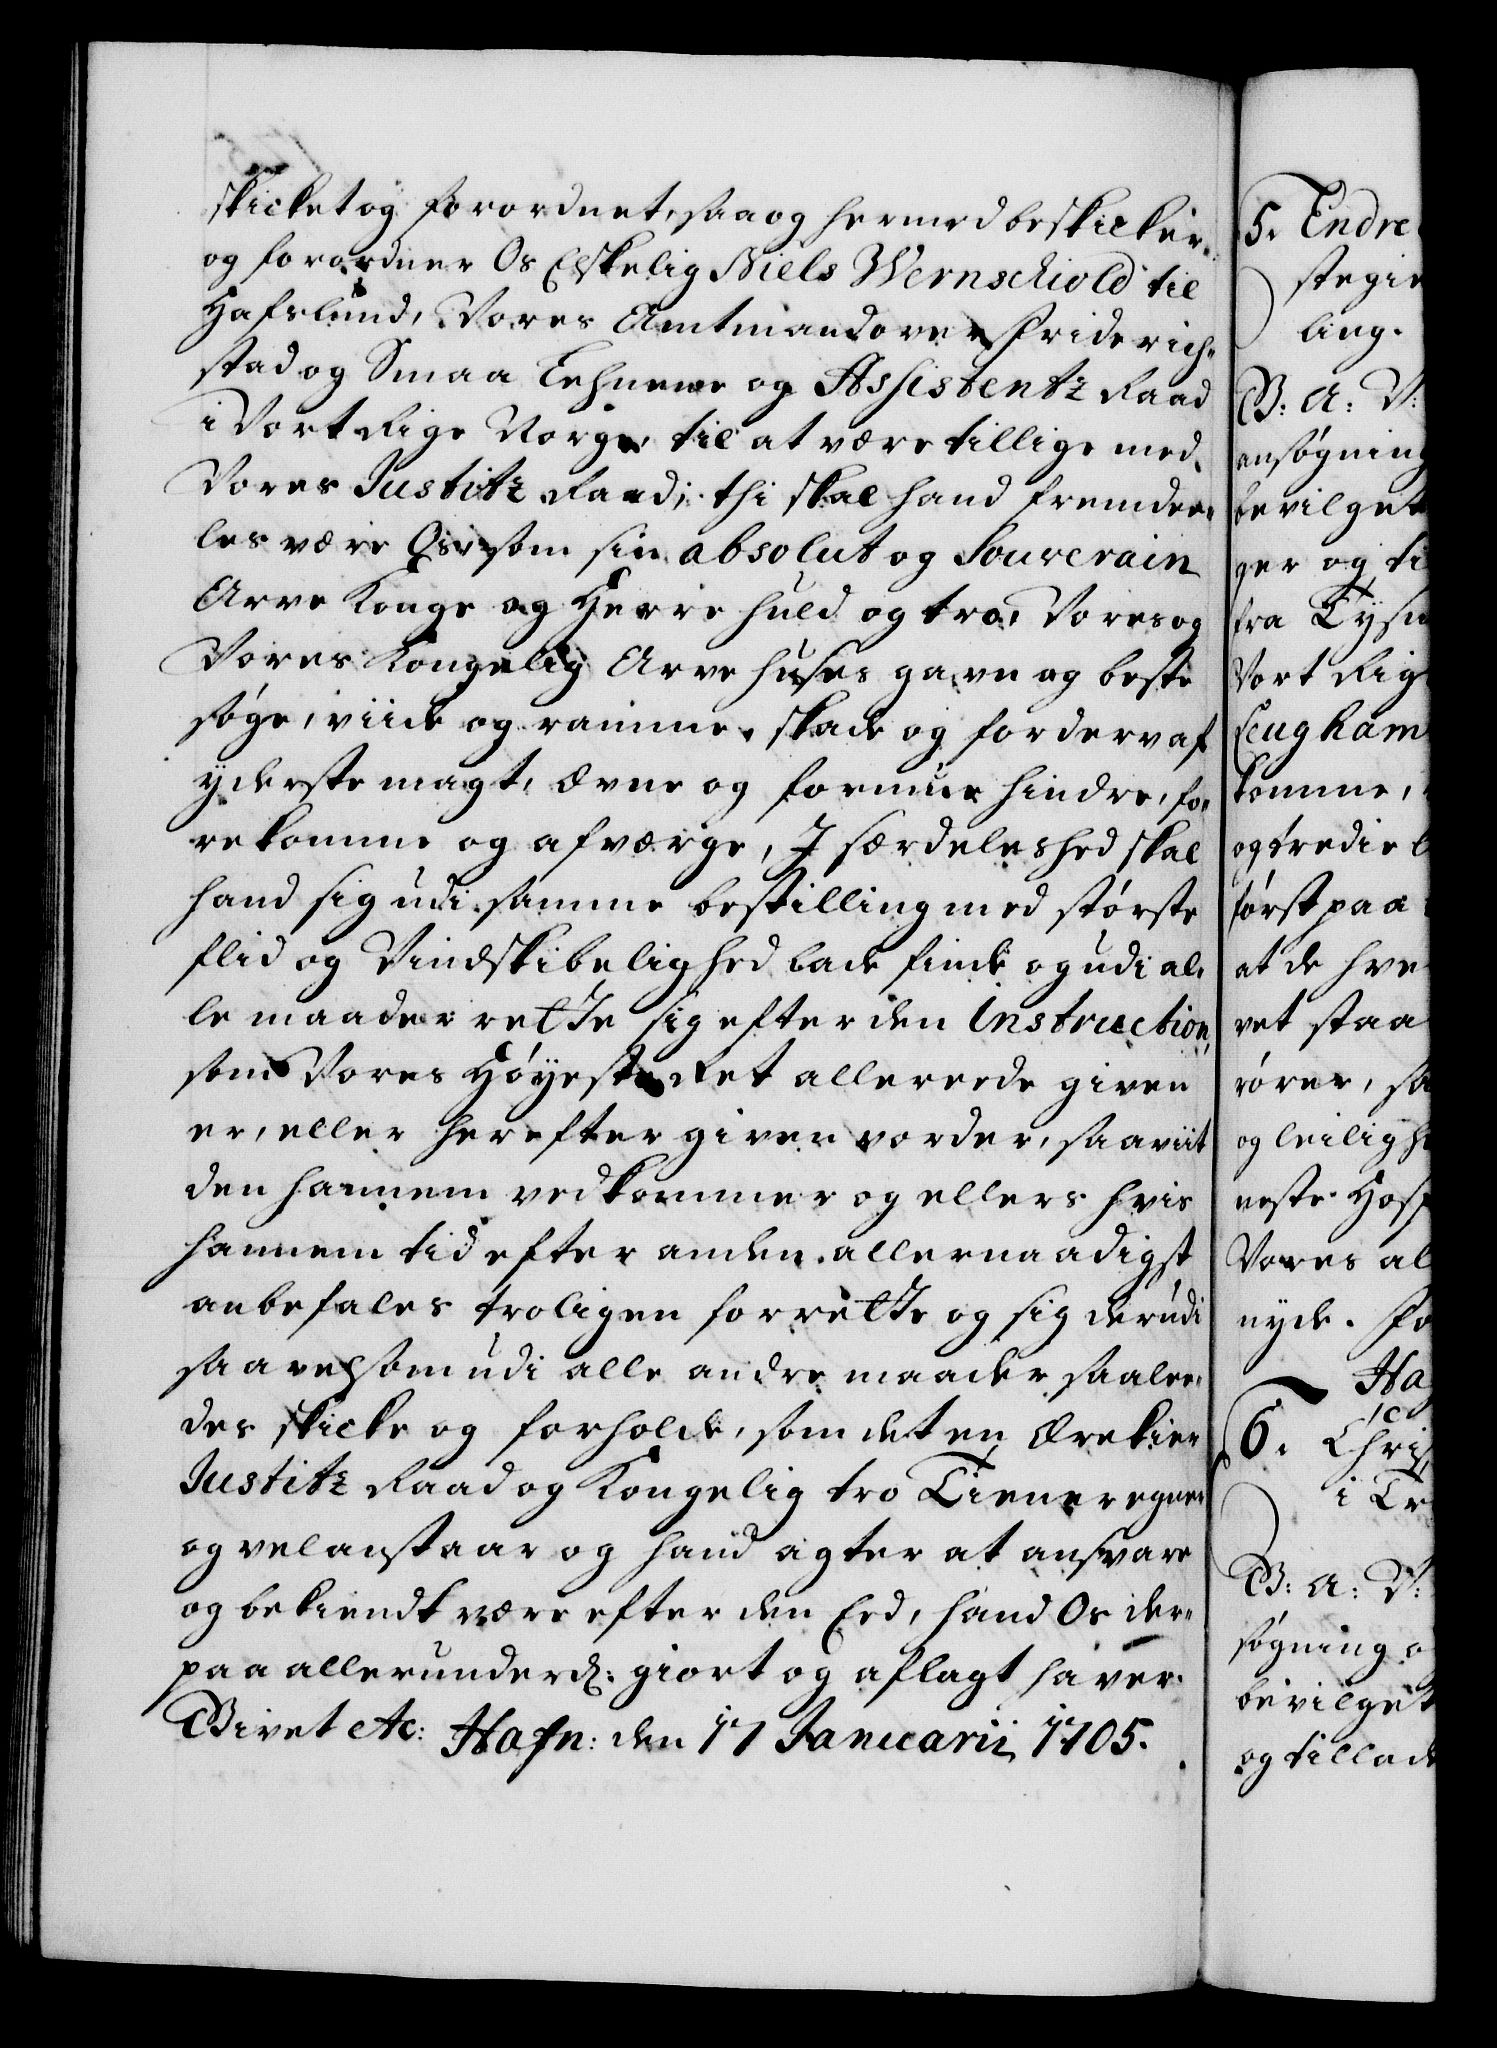 skicket og forordnet, saa og hermed beskicker
og forordner Os Elskelig Niels Wernschiold til
Hafslund, Vores Amtmand over Friderich-
stad og Smaa Lehnene og Assistentz Raad
i Vort Rige Norge, til at være tillige med
Vores Justitz Raad; thi skal hand fremdee-
les være Os som sin absolut og Souverain
Arve Konge og Herre huld og tro, Vores og
Vores Kongelig Arve Huses gavn og beste
søge, viide og ramme, skade og forderv af
yderste magt, ævne og formue hindre, fo-
rekomme og afværge, I særdeleshed skal
hand sig udi samme bestilling med største
flid og Vindskibelighed lade finde og udi al-
le maader rette sig efter den Instruction,
som Vores Høyeste Ret allereede given
er, eller herefter given vorder, saaviit
den hannem vedkommer og ellers hvis
hannem tid efter anden allernaadigst
anbefales troligen forrette og sig derudi
saavelsom udi alle andre maader saalee-
des skicke og forholde, som det en Ærekier
Justitz Raad og Kongelig tro Tiener egner
og velanstaar og hand agter at ansvare
og bekiendt være efter den Eed, hand Os der-
paa allerunderd: giort og aflagt haver.
Givet etc: Hafn: den 17 Januarii 1705.
5. Endre
stegie
ling.
G: A: V:
ansøgning
bevilget
ger og ti
fra Tysn
Vort Rig
Leugham
komme,
og tredie
først paa
at de hve
vet staa
rører, sa
og leiligh
neste Hosp
Vores al
nyde. Fo
Ha
6. Chris
i Tr
G: A: V:
søgning o
bevilget
og tillade